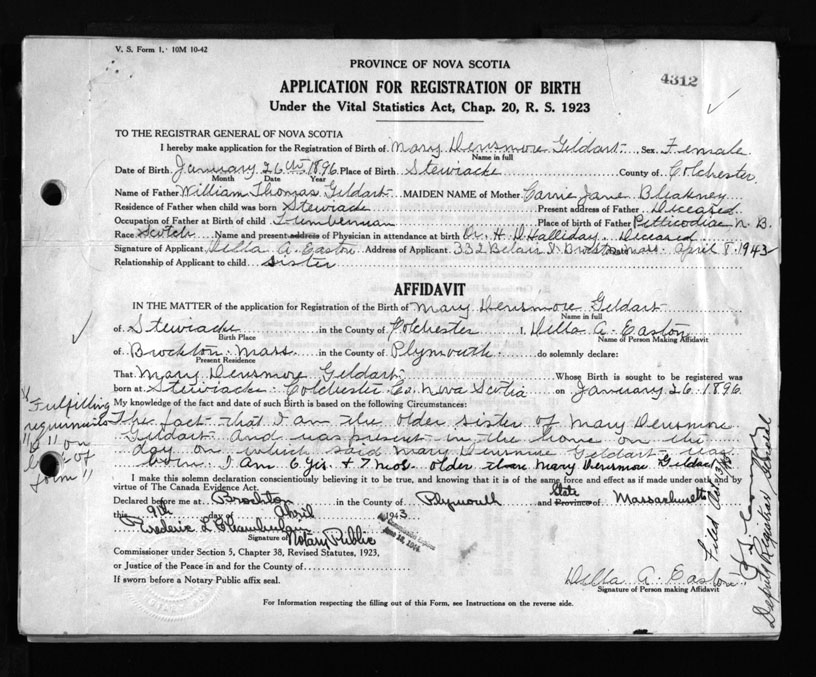 V. S. Form 1. 10M 10-42
PROVINCE OF NOVA SCOTIA
4312
APPLICATION FOR REGISTRATION OF BIRTH
Under the Vital Statistics Act, Chap. 20, R. S. 1923
TO THE REGISTRAR GENERAL OF NOVA SCOTIA
I hereby make application for the Registration of Birth of Mary Densmore Geldart Sex Female
Name in full
Date of Birth January 26th 1896 Place of Birth Stewiacke County of Colchester
Month Date Year
Name of Father William Thomas Geldart MAIDEN NAME of Mother Carrie Jane Bleakney
Residence of Father when child was born Stewiacke Present address of Father Diceased
Occupation of Father at Birth of child Lumberman Place of birth of Father Petticodiac N. B.
Race Scotch Name and present address of Physician in attendance at birth Dr. H D Halliday Deceased
Signature of Applicant Della A. Easton Address of Applicant 332 Belair St Brockton Mass. April 8. 1943
Relationship of Applicant to child Sister
AFFIDAVIT
IN THE MATTER of the application for Registration of the Birth of Mary Densmore Geldart
Name in full
of Stewiacke in the County of Colchester I, Della A. Easton
Birth Place Name of Person Making Affidavit
of Brockton Mass in the County of Plymouth do solemnly declare:
Present Residence
That Mary Densmore Geldart Whose Birth is sought to be registered was
born at Stewiacke Colchester Co. Nova Scotia on January 26 1896
My knowledge of the fact and date of such Birth is based on the following Circumstances:
"Fulfilling
requirements
"b" on
back of
form"
The fact that I am the older sister of Mary Densmore
Geldart and was present in the home on the
day on which said Mary Densmore Geldart was
born. I Am 6 Yrs. + 7 Mos. older than Mary Densmore Geldart
I make this solemn declaration conscientiously believing it to be true, and knowing that it is of the same force and effect as if made under oath and by
virtue of The Canada Evidence Act.
Declared before me at Brockton in the County of Plymouth and State Province of Massachusetts
this 9th day of April 1943
Frederic L Notary Public
Signature of
Commissioner under Section 5, Chapter 38, Revised Statutes, 1923,
or Justice of the Peace in and for the County of
If sworn before a Notary Public affix seal.
Della A. Easton
Signature of Person making Affidavit
For Information respecting the filling out of this Form, see Instructions on the reverse side.
Filed
Deputy Registrar General